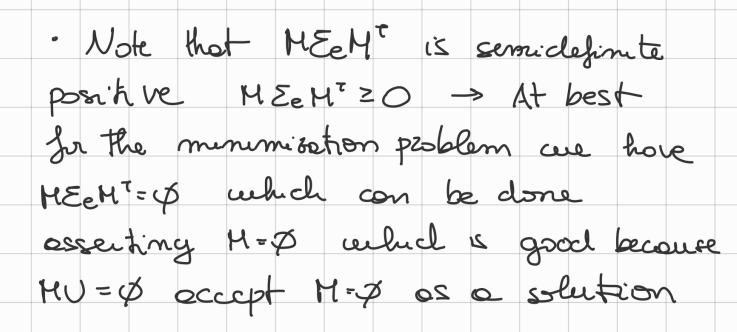 • Note that MΣeMᵀ is semidefinite
positive MΣeMᵀ ≥ 0 → At best
for the minimisation problem we have
MΣeMᵀ = ∅ which can be done
asserting M = ∅ which is good because
MU = ∅ accept M = ∅ as a solution